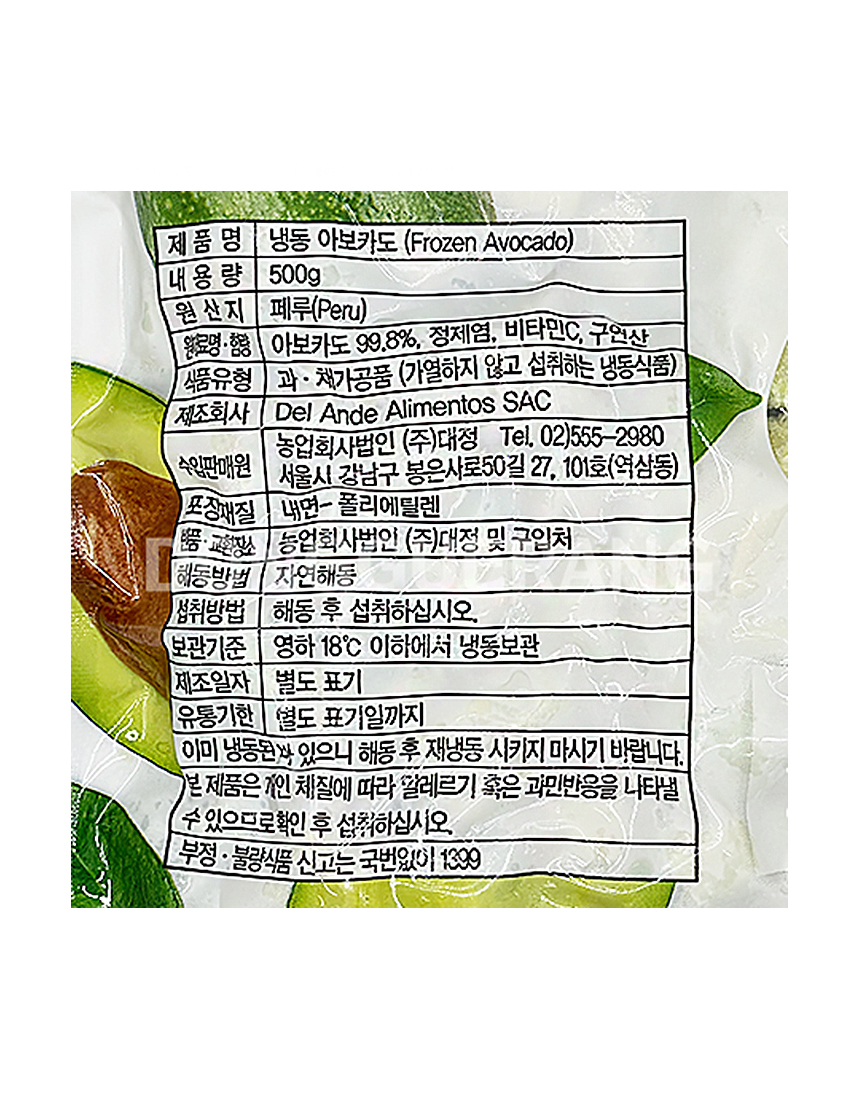 제 품 명 냉동 아보카도 (Frozen Avocado)
내 용 량 500g
원 산 지 페루(Peru)
원료명·함량 아보카도 99.8%, 정제염, 비타민C, 구연산
식품유형 과·채가공품 (가열하지 않고 섭취하는 냉동식품)
제조회사 Del Ande Alimentos SAC
수입판매원 농업회사법인 (주)대정 Tel. 02)555-2980
서울시 강남구 봉은사로50길 27, 101호(역삼동)
포장재질 내면- 폴리에틸렌
반품·교환장소 농업회사법인 (주)대정 및 구입처
해동방법 자연해동
섭취방법 해동 후 섭취하십시오.
보관기준 영하 18℃ 이하에서 냉동보관
제조일자 별도 표기
유통기한 별도 표기일까지
이미 냉동된 바 있으니 해동 후 재냉동 시키지 마시기 바랍니다.
본 제품은 개인 체질에 따라 알레르기 혹은 과민반응을 나타낼
수 있으므로 확인 후 섭취하십시오.
부정·불량식품 신고는 국번없이 1399